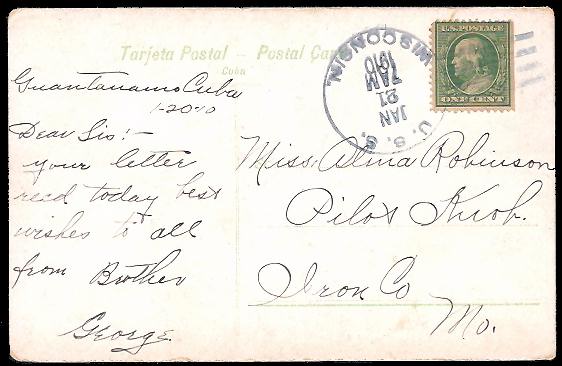 Tarjeta Postal – Postal Card
Cuba
U.S.S. WISCONSIN.
JAN
21
7AM
1910
U.S. POSTAGE
ONE CENT
Guantanamo Cuba
1-20-10
Dear Sis:-
your letter
recd today best
wishes to all
from Brother
George.
Miss. Alma Robinson
Pilot Knob.
Iron Co
Mo.